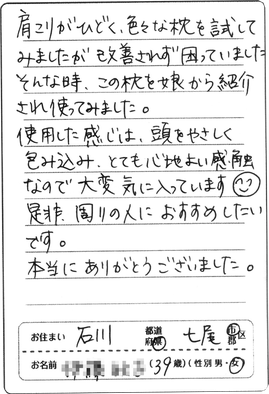 肩こりがひどく、色々な枕を試して
みましたが改善されず困っていました
そんな時、この枕を娘から紹介
され使ってみました。
使用した感じは、頭をやさしく
包み込み、とても心地よい感触
なので大変気に入っています
是非、周りの人におすすめしたい
です。
本当にありがとうございました。
お住まい 石川 都道府県 七尾 市郡区
お名前 (39歳)(性別男・女)